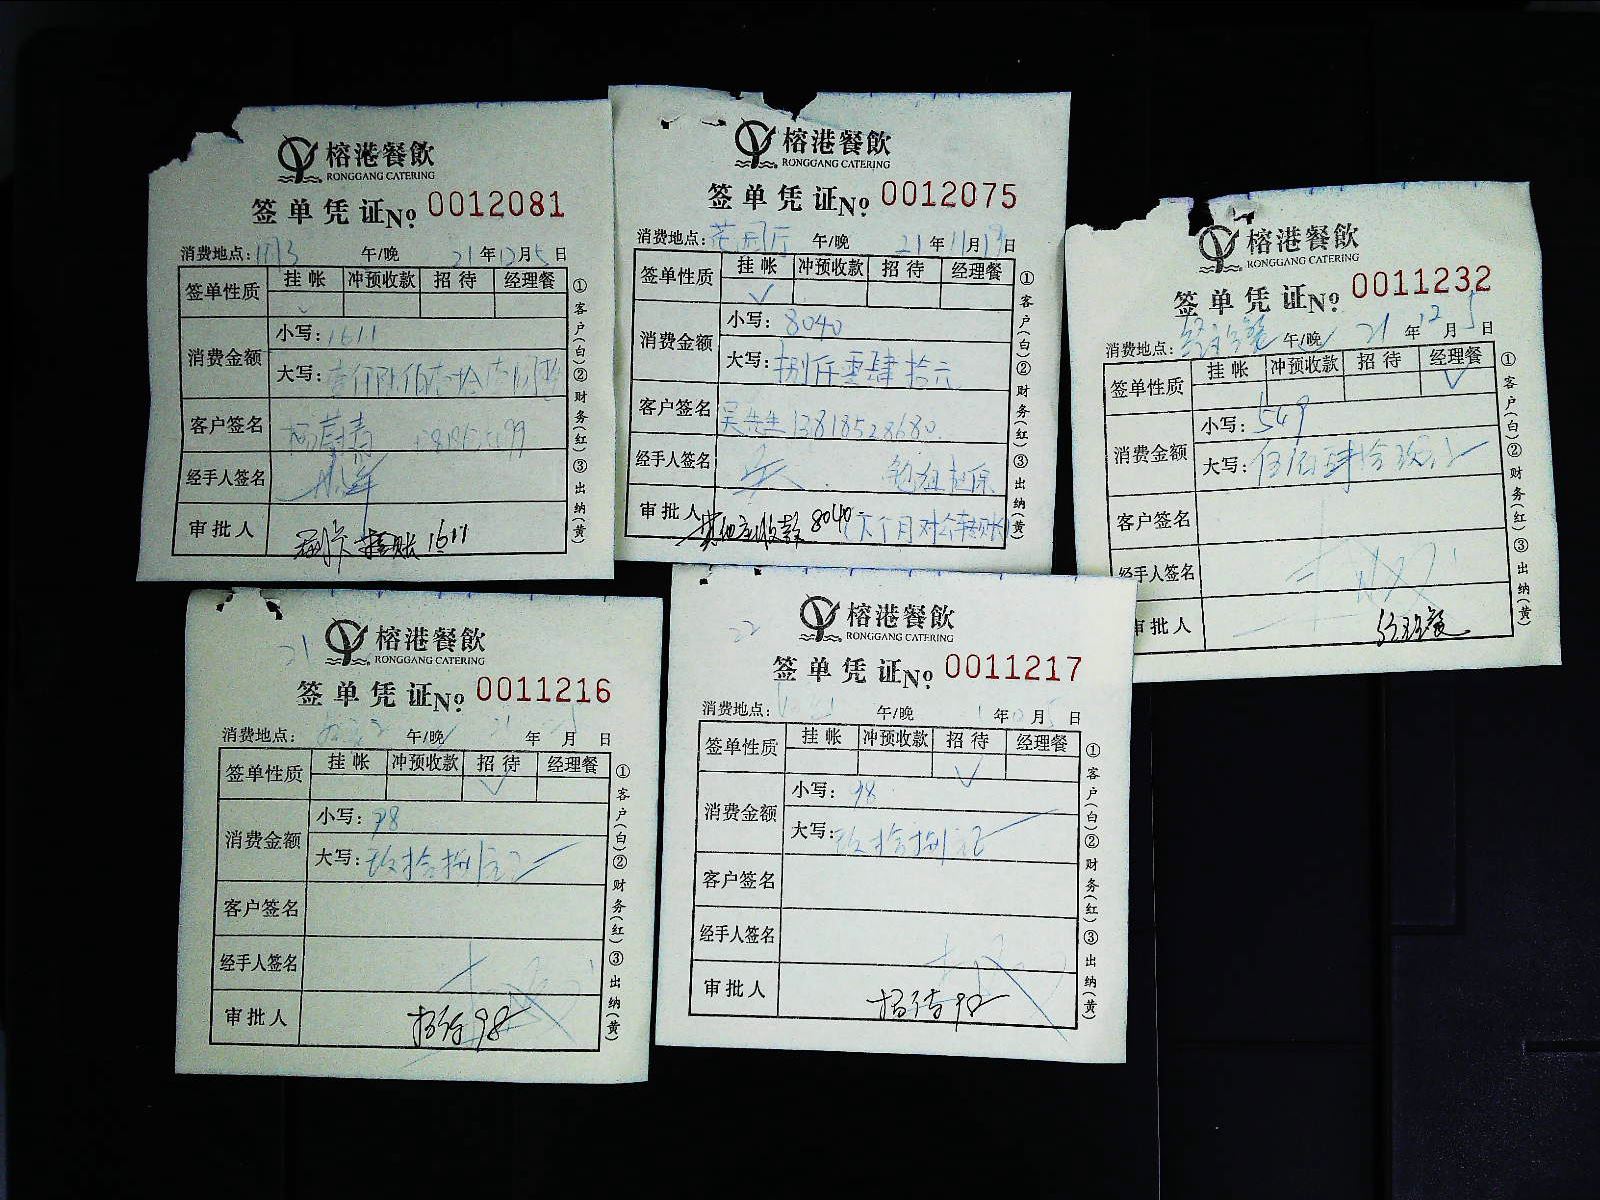 榕港餐飲
RONGGANG CATERING
签单凭证No. 0012081
消费地点: 午/晚 21年12月5日
签单性质 挂帐 冲预收款 招待 经理餐
消费金额
小写: 1611
大写:
客户签名
经手人签名
审批人 挂账1611
①客户(白)②财务(红)③出纳(黄)
榕港餐飲
RONGGANG CATERING
签单凭证No. 0012075
消费地点: 午/晚 21年11月19日
签单性质 挂帐 冲预收款 招待 经理餐
✓
消费金额
小写: 8040
大写: 捌仟零肆拾元
客户签名 吴先生 13818528680.
经手人签名
审批人 其他应收款 8040 下个月对公转账
①客户(白)②财务(红)③出纳(黄)
榕港餐飲
RONGGANG CATERING
签单凭证No. 0011232
消费地点: 经理餐 午/晚 21年12月5日
签单性质 挂帐 冲预收款 招待 经理餐
✓
消费金额
小写: 549
大写: 伍佰肆拾玖元
客户签名
经手人签名
审批人 经理餐
①客户(白)②财务(红)③出纳(黄)
21
榕港餐飲
RONGGANG CATERING
签单凭证No. 0011216
消费地点: 午/晚 年 月 日
签单性质 挂帐 冲预收款 招待 经理餐
✓
消费金额
小写: 98
大写: 玖拾捌元
客户签名
经手人签名
审批人 招待98
①客户(白)②财务(红)③出纳(黄)
22
榕港餐飲
RONGGANG CATERING
签单凭证No. 0011217
消费地点: 午/晚 年 月 日
签单性质 挂帐 冲预收款 招待 经理餐
✓
消费金额
小写: 98
大写: 玖拾捌元
客户签名
经手人签名
审批人 招待98
①客户(白)②财务(红)③出纳(黄)